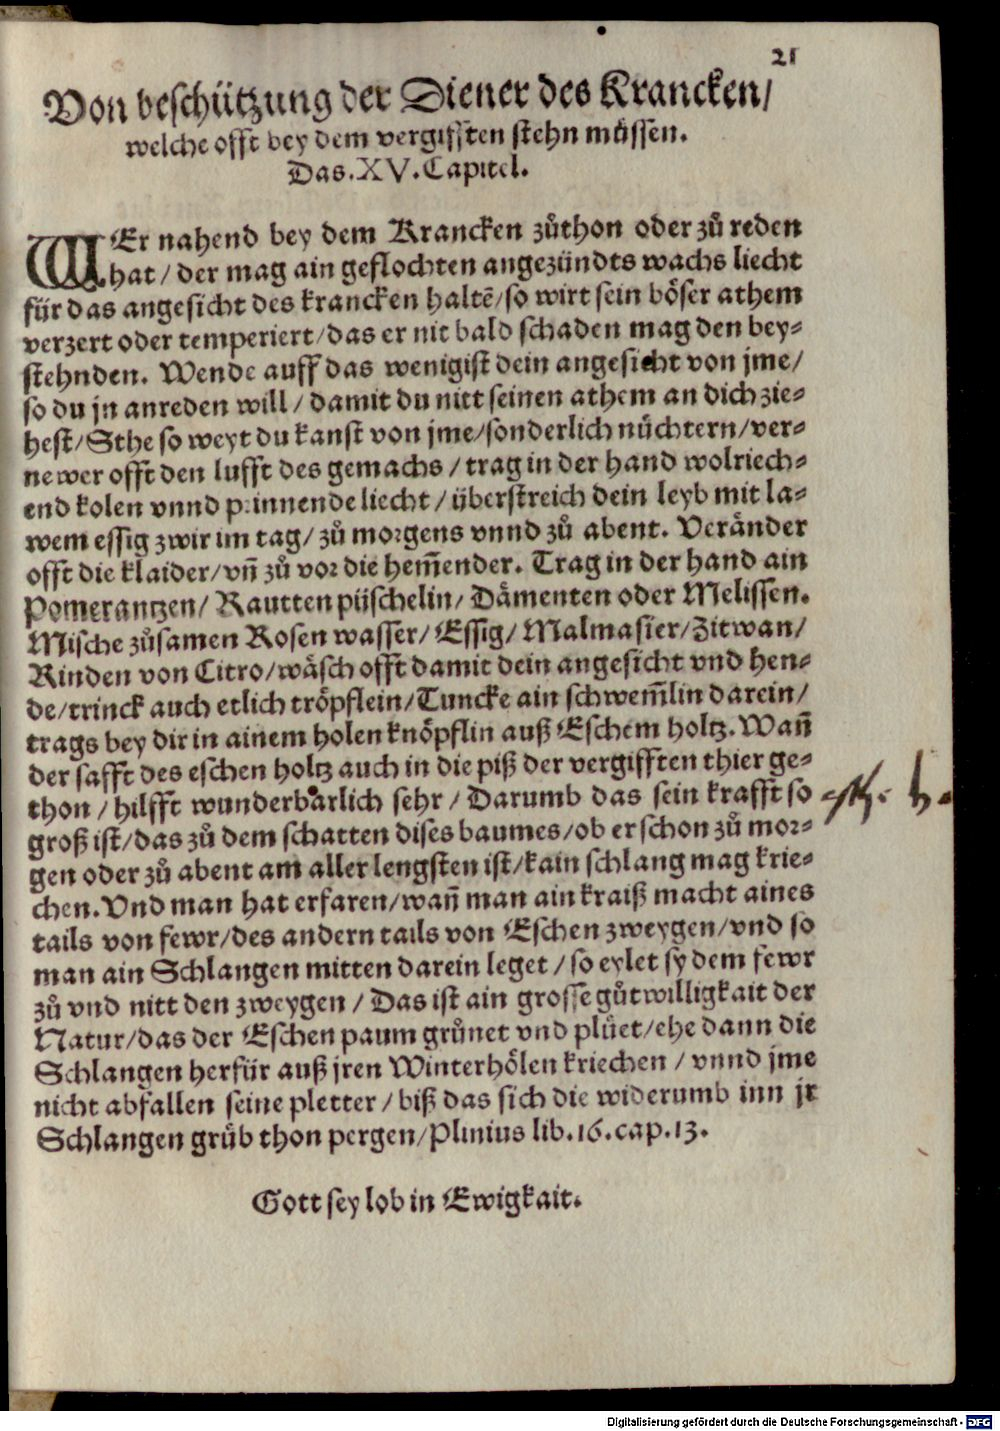 21
Von beschützung der Diener des Krancken/
welche offt bey dem vergifften stehn müssen.
Das. XV. Capitel.
WEr nahend bey dem Krancken zůthon oder zů reden
hat/ der mag ain geflochten angezündts wachs liecht
für das angesicht des krancken haltē/ so wirt sein böser athem
verzert oder temperiert/ das er nit bald schaden mag den bey-
stehnden. Wende auff das wenigist dein angesicht von jme/
so du jn anreden will/ damit du nitt seinen athem an dich zie-
hest/ Sthe so weyt du kanst von jme/ sonderlich nüchtern/ ver-
newer offt den lufft des gemachs/ trag in der hand wolriech-
end kolen vnnd prinnende liecht/ überstreich dein leyb mit la-
wem essig zwir im tag/ zů morgens vnnd zů abent. Veränder
offt die klaider/ vn̄ zů vor die hem̄ender. Trag in der hand ain
Pomerantzen/ Rautten püschelin/ Dämenten oder Melissen.
Mische zůsamen Rosen wasser/ Essig/ Malmasier/ Zitwan/
Rinden von Citro/ wäsch offt damit dein angesicht vnd hen-
de/ trinck auch etlich tröpflein/ Tuncke ain schwem̄lin darein/
trags bey dir in ainem holen knöpflin auß Eschem holtz. Wan̄
der safft des eschen holtz auch in die piß der vergifften thier ge-
thon/ hilfft wunderbarlich sehr/ Darumb das sein krafft so
groß ist/ das zů dem schatten dises baumes/ ob er schon zů mor-
gen oder zů abent am aller lengsten ist/ kain schlang mag krie-
chen. Vnd man hat erfaren/ wan̄ man ain kraiß macht aines
tails von fewr/ des andern tails von Eschen zweygen/ vnd so
man ain Schlangen mitten darein leget/ so eylet sy dem fewr
zů vnd nitt den zweygen/ Das ist ain grosse gůtwilligkait der
Natur/ das der Eschen paum grůnet vnd plüet/ ehe dann die
Schlangen herfür auß jren Winterhölen kriechen/ vnnd jme
nicht abfallen seine pletter/ biß das sich die widerumb inn jr
Schlangen grůb thon pergen/ Plinius lib. 16. cap. 13.
Gott sey lob in Ewigkait.
Digitalisierung gefördert durch die Deutsche Forschungsgemeinschaft - DFG